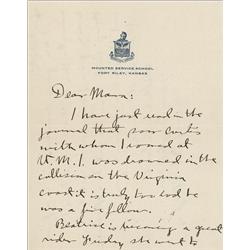 MOUNTED SERVICE SCHOOL
FORT RILEY, KANSAS
Dear Mama:
I have just read in the
journal that poor Curtis
with whom I roomed at
V.M.I. was drowned in the
collision on the Virginia
coast it is truly too bad he
was a fine fellow.
Beatrice is becoming a great
rider Friday she went to